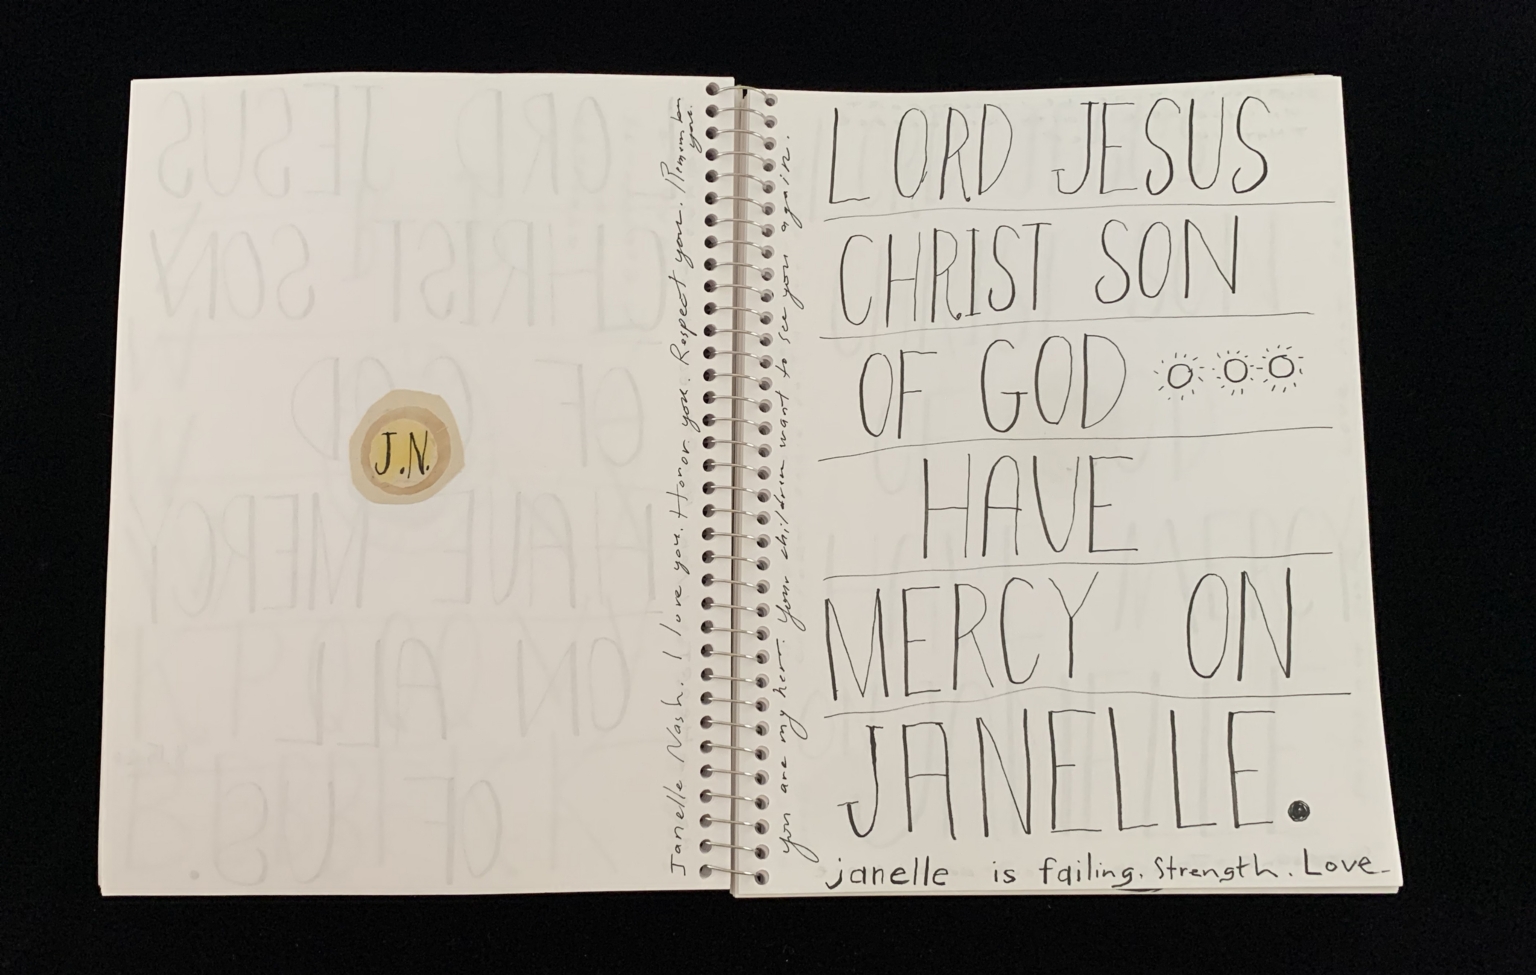 J.N.
Janelle Nash. I love you. Honor you. Respect you. Remember
you.
you are my hero. Your children want to see you again.
LORD JESUS
CHRIST SON
OF GOD
HAVE
MERCY ON
JANELLE.
janelle is failing. Strength. Love